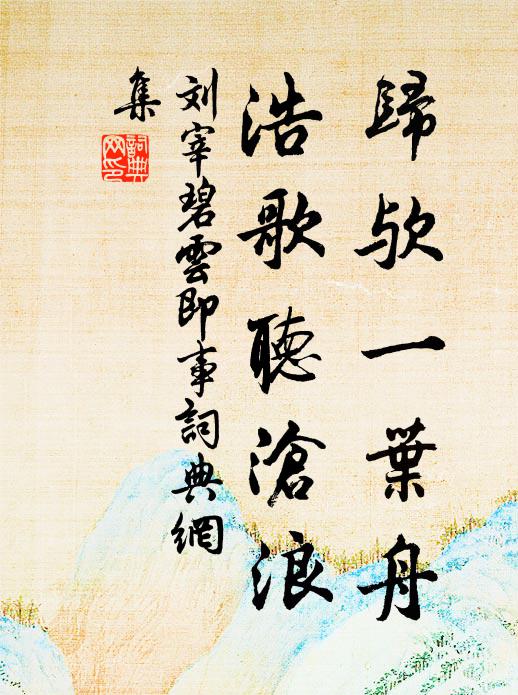 歸欤一葉舟
浩歌聽滄浪
刘宰碧雲即事詞典網
集
詞典
网印